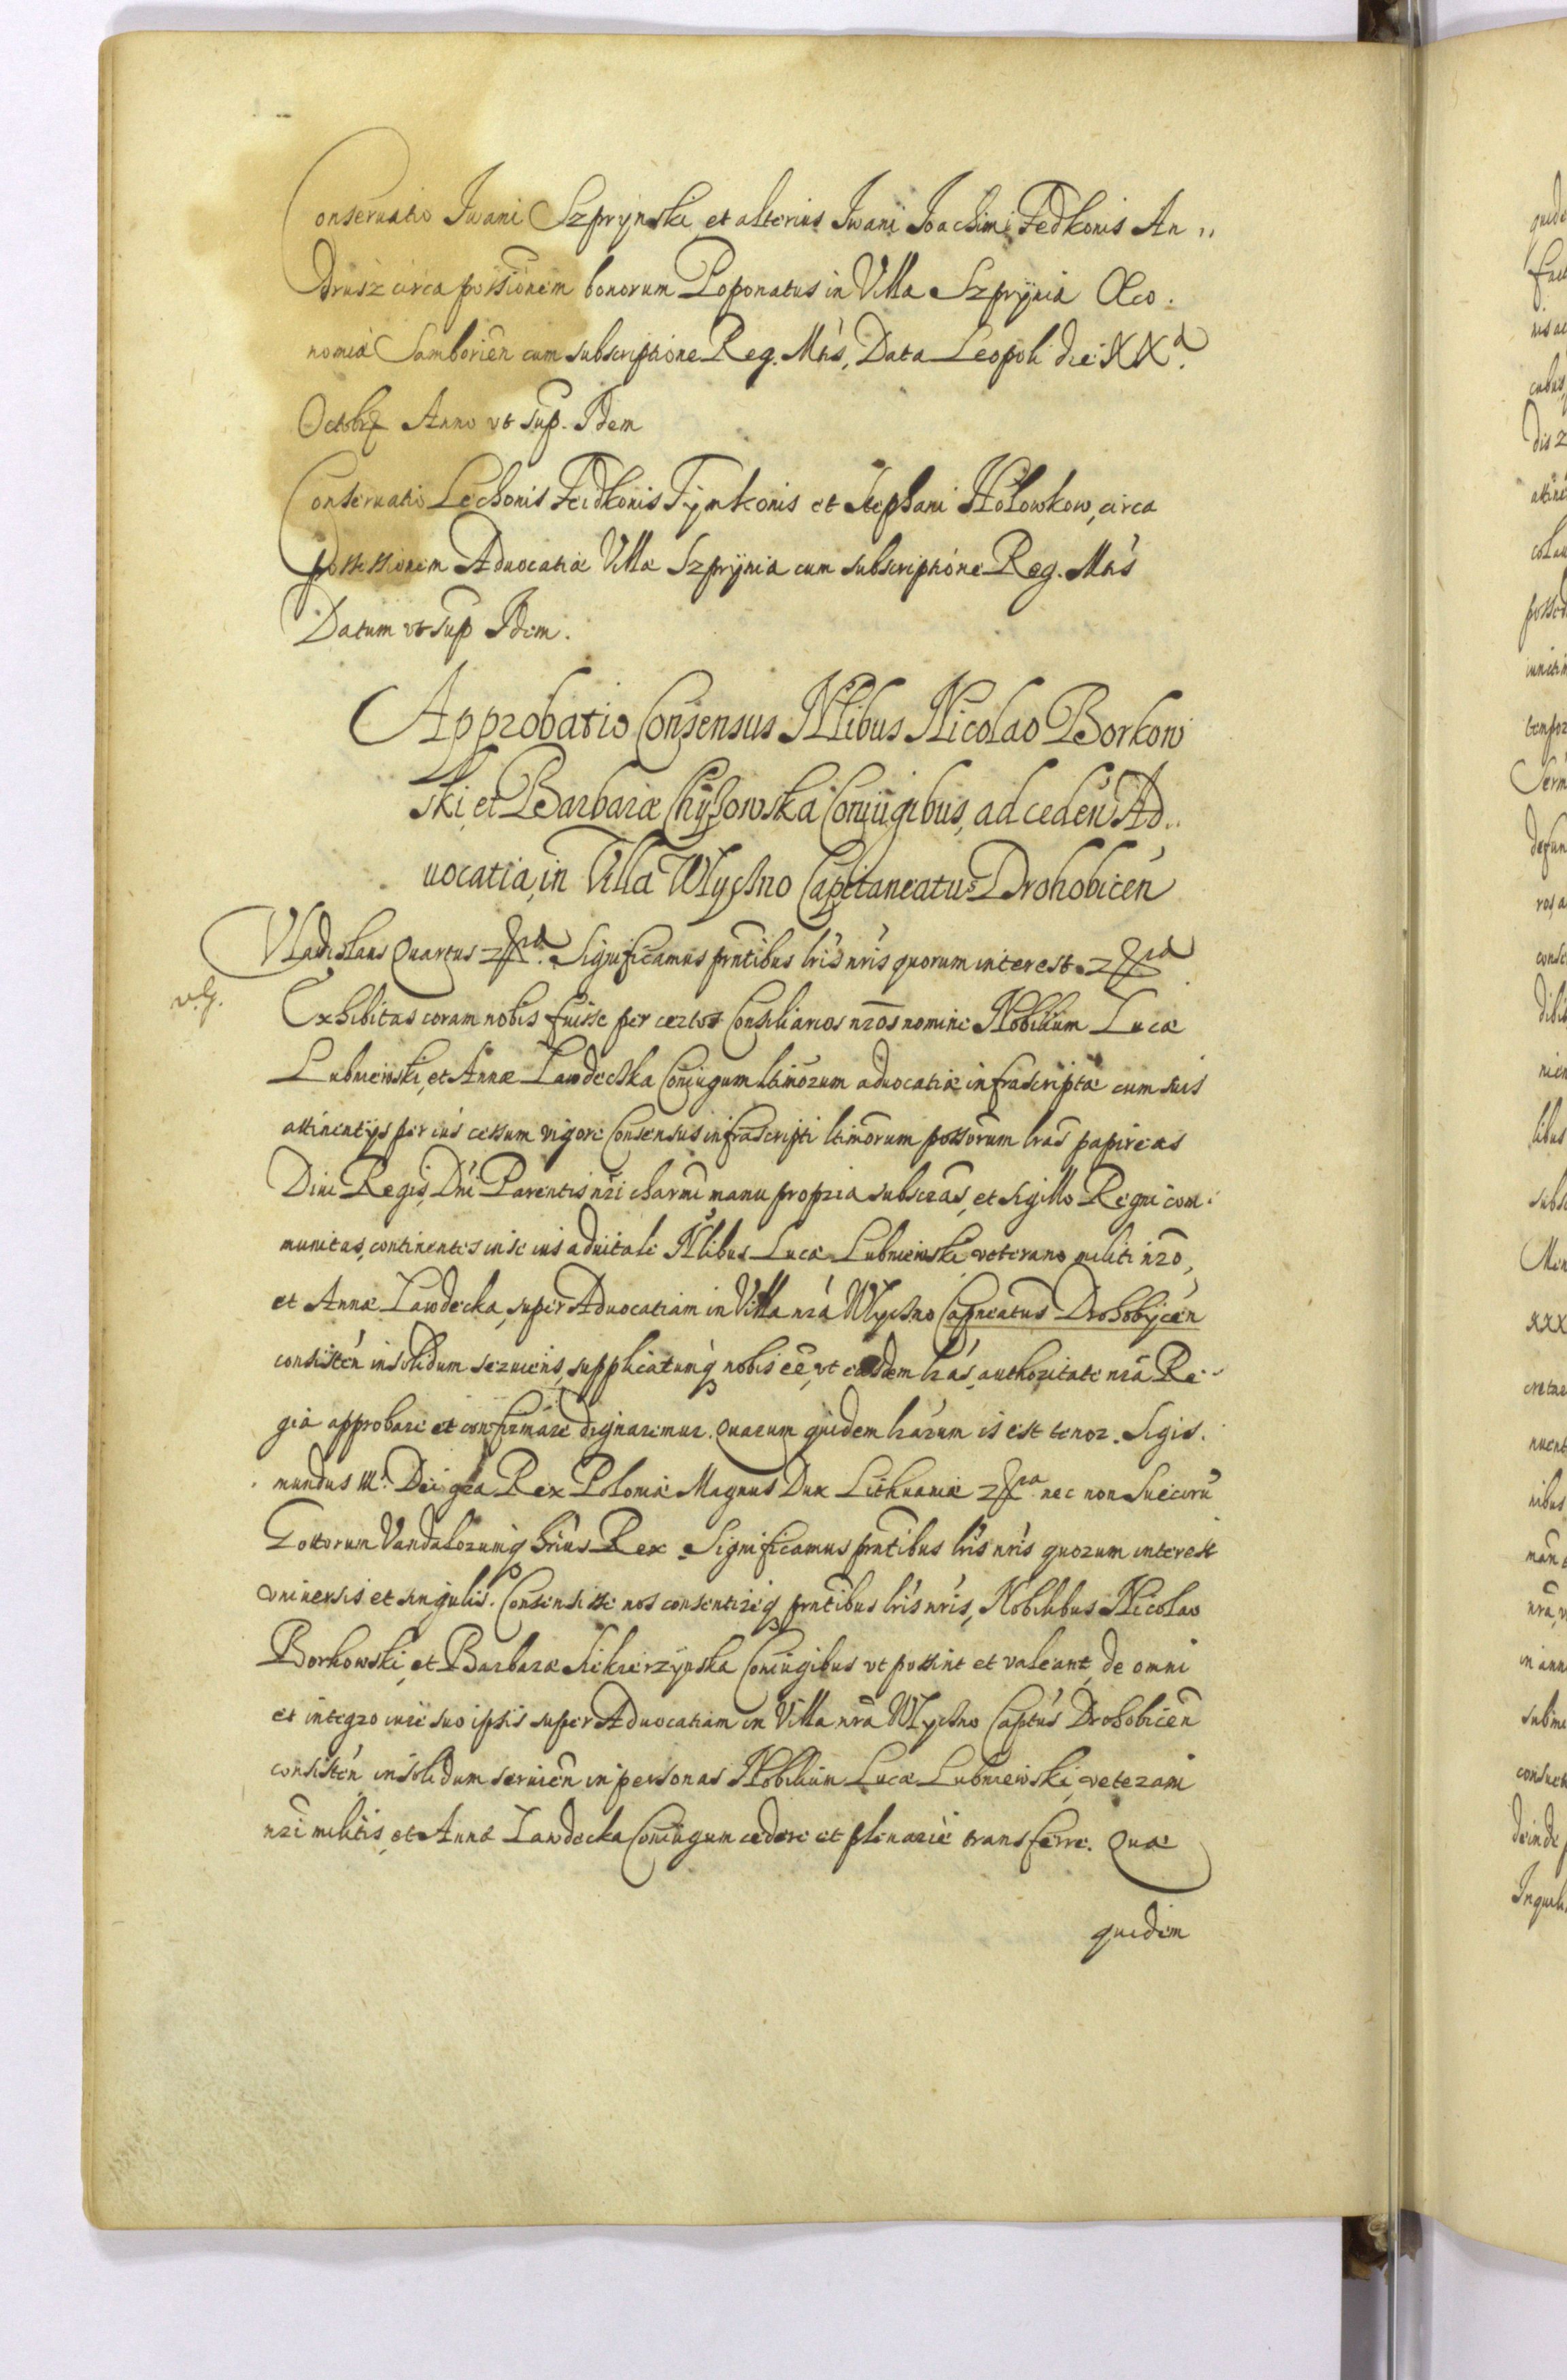 Conseruatio Iwani Szprynski et alterius Iwani Ioachimi Fedkonis An
drusz circa possionem bonorum Poponatus in Villa Szprynia Oeco.
nomia Samborien cum subscriptione Reg. Mtis, Data Leopoli die XXa.
Octobr Anno vt sup. Idem
Conseruatio Lechonis Feidkonis Tymkonis et Stephani Holowkow, circa
possessionem Aduocatiæ Villæ Szprynia cum subscriptione Reg. Mtis
Datum vt sup Idem.
Approbatio Consensus Nlibus Nicolao Borkow
ski, et Barbaræ Coniugibus, ad ceden Ad
uocatia, in Villa Wlyczno Capitaneatus Drohobicen
Vladislaus Quartus Significamus prntibus lris nris quorum interest
v.G.
Exhibitas coram nobis fuisse per certos Consiliarios nros nomine Nobilium Lucæ
Lubniewski, et Annæ Zawdecka Coniugum ltimorum aduocatiæ infrascriptæ cum suis
attinentijs per ius cessum vigore Consensus infrascripti ltimorum possorum lras papireas
Diui Regis, Dni Parentis nri charmi manu propria subscras, et sigillo Regni com
munitas, continentes in se ius aduitale Nlibus Lucæ Lubniewski veterano militi nro,
et Annæ Zawdecka, super Aduocatiam in Villa nra Wlyczno Capneatus Drohobycen
consisten in solidum seruiens, supplicatumq nobis ee, vt easdem lras, authoritate nra Re
gia approbare et confirmare dignaremur. Quarum quidem lrarum is est tenor. Sigis
mundus III. Dei gra Rex Poloniæ Magnus Dux Lithuaniæ nec non Suecoru
Gottorum Vandalorumq hrius Rex. Significamus prntibus lris nris quorum interest
vniuersis et singulis. Consensisse nos consentireq prntibus lris nris, Nobilibus Nicolao
Borkowski, et Barbaræ Siekierzynska Coniugibus vt possint et valeant, de omni
et integro iure suo ipsis super Aduocatiam in Villa nra Wlyczno Captus Drohobicen
consisten in solidum seruien in personas Nobilium Lucæ Lubniewski, veterani
nri militis, et Annæ Zawdecka Coniugum cedere et plenarie transferre. Quæ
quidem